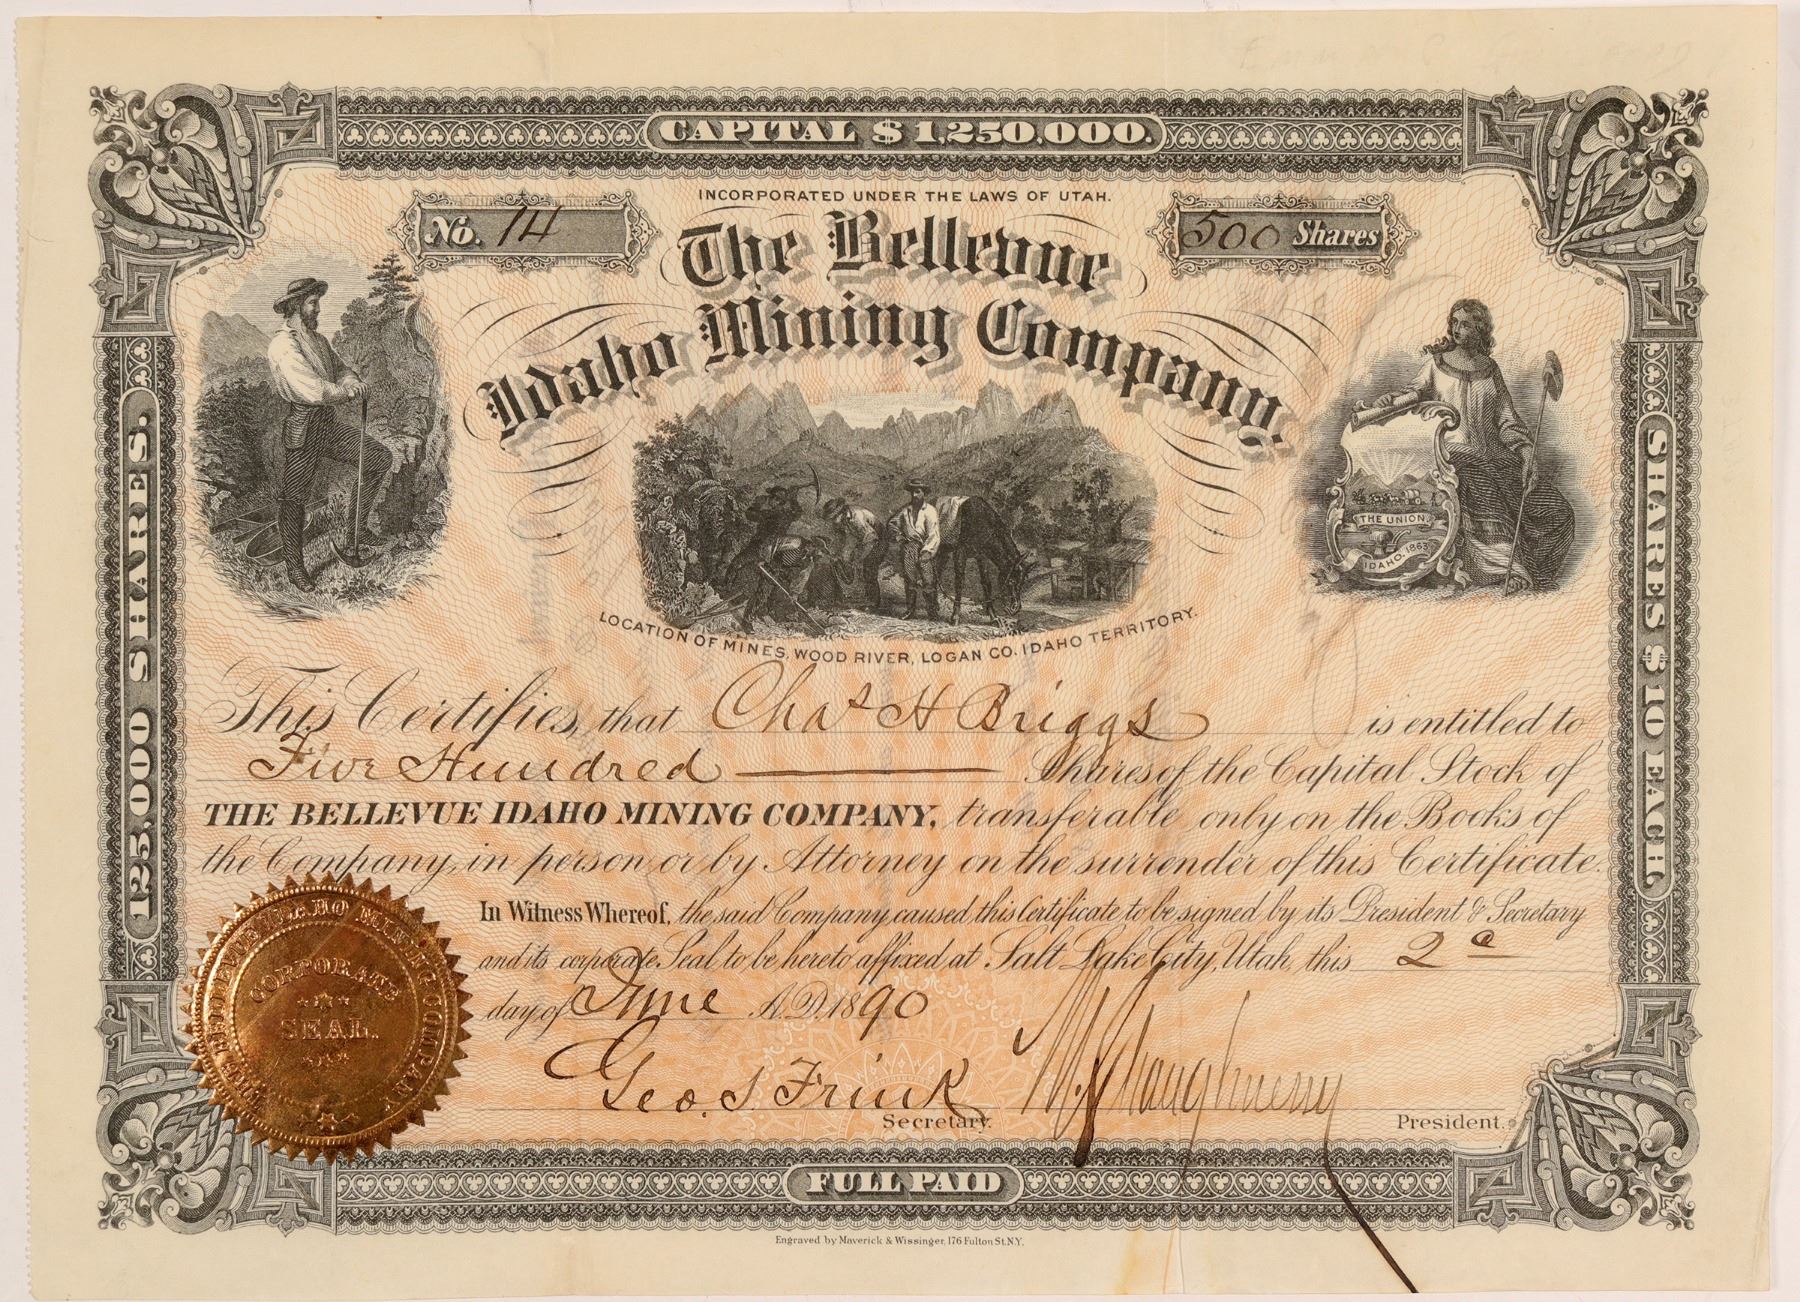 CAPITAL $1,250,000.
INCORPORATED UNDER THE LAWS OF UTAH.
No. 14
500 Shares
The Bellevue
Idaho Mining Company.
THE UNION
IDAHO. 1863
LOCATION OF MINES, WOOD RIVER, LOGAN CO. IDAHO TERRITORY.
125,000 SHARES.
SHARES $10 EACH.
This Certifies, that Chas H Briggs is entitled to
Five Hundred Shares of the Capital Stock of
THE BELLEVUE IDAHO MINING COMPANY, transferable only on the Books of
the Company, in person or by Attorney on the surrender of this Certificate.
In Witness Whereof, the said Company caused this Certificate to be signed by its President & Secretary
and its corporate Seal to be hereto affixed at Salt Lake City, Utah, this 2d
day of June A.D. 1890
THE BELLEVUE IDAHO MINING COMPANY
CORPORATE
SEAL.
Geo. S. Frink
Secretary.
President.
FULL PAID
Engraved by Maverick & Wissinger, 176 Fulton St. N.Y.